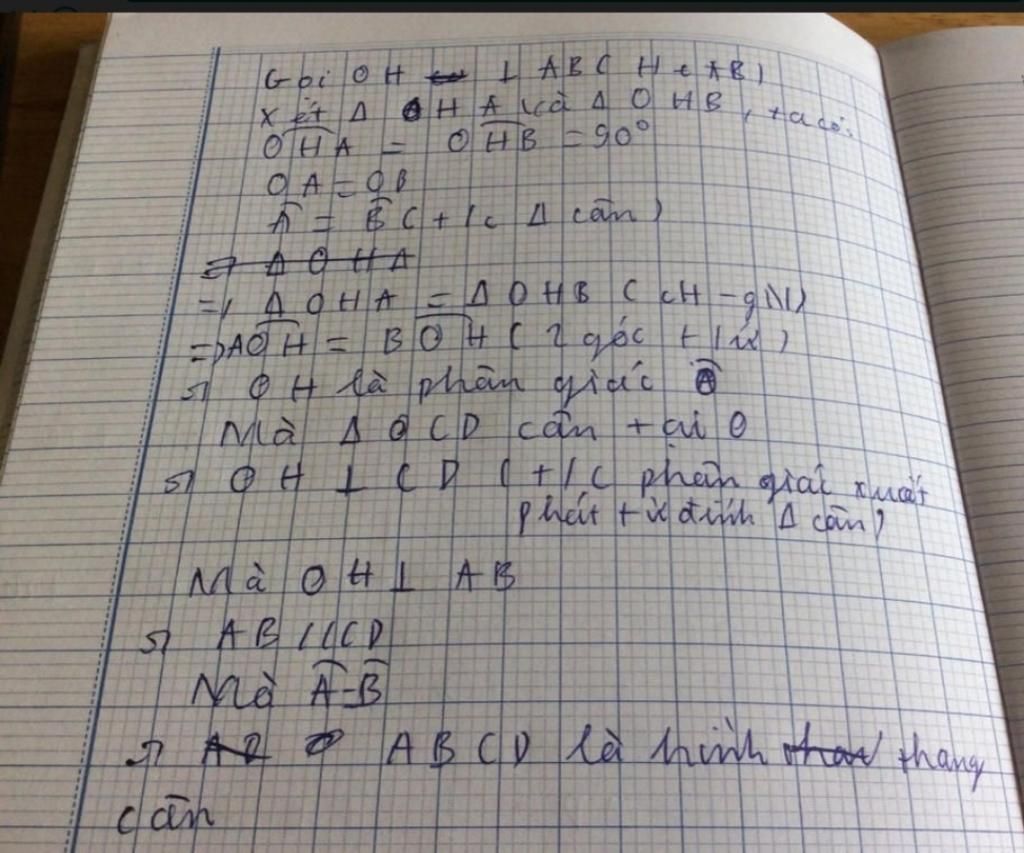 Gọi OH ⊥ AB ( H ∈ AB )
Xét Δ OHA và Δ OHB, ta có:
OHA = OHB = 90°
OA = OB
A = B ( t/c Δ cân )
=> Δ OHA
=> Δ OHA = Δ OHB ( cH - gN )
=> AOH = BOH ( 2 góc t/ứ )
=> OH là phân giác Ô
Mà Δ OCD cân tại O
=> OH ⊥ CD ( t/c phân giác xuất
phát từ đỉnh Δ cân )
Mà OH ⊥ AB
=> AB // CD
Mà A = B
=> ABCD là hình thang
cân